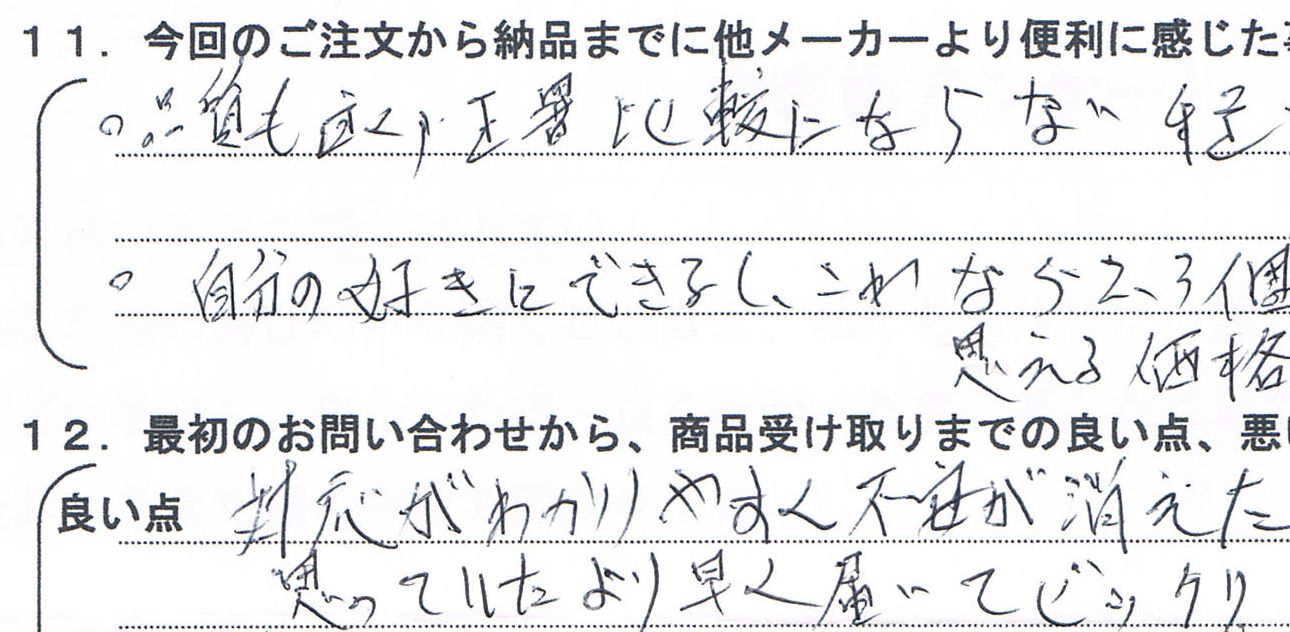 11. 今回のご注文から納品までに他メーカーより便利に感じた
○品質も良く、正署比較にならない程
○ 自分の好きにできるし、これなら2、3個
思える価格
12. 最初のお問い合わせから、商品受け取りまでの良い点、悪い
良い点 対応がわかりやすく不安が消えた
思っていたより早く届いてビックリ